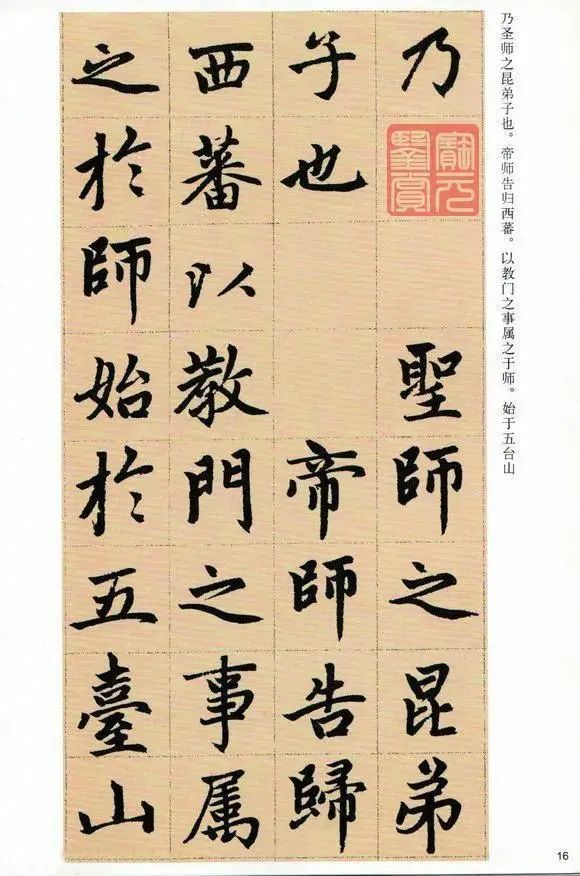 乃聖師之昆弟
子也帝師告歸
西蕃以教門之事属
之於師始於五臺山
寶元
鑒賞
乃圣师之昆弟子也。帝师告归西蕃。以教门之事属之于师。始于五台山
16